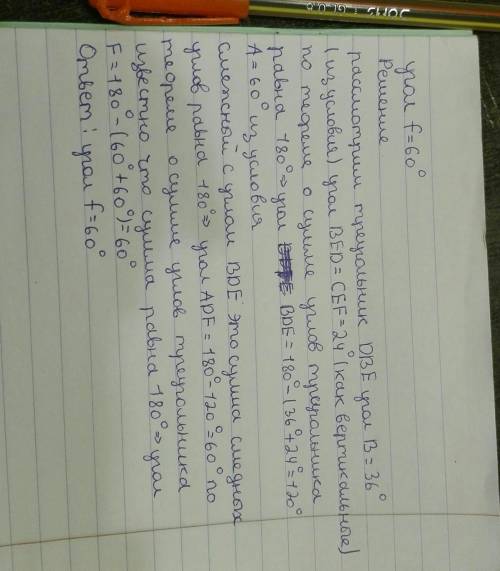 угол f=60°
Решение
рассмотрим треугольник DBE угол B=36°
(из условия) угол BED=CEF=24° (как вертикальные)
по теореме о сумме углов треугольника
равна 180° ⇒ угол BDE=180°-(36°+24°=120°
A=60° из условия
смежный с углом BDE это сумма смежных
углов равна 180° ⇒ угол ADF=180°-120°=60° по
теореме о сумме углов треугольника
известно что сумма равна 180° ⇒ угол
F=180°-(60°+60°)=60°
Ответ: угол f=60°